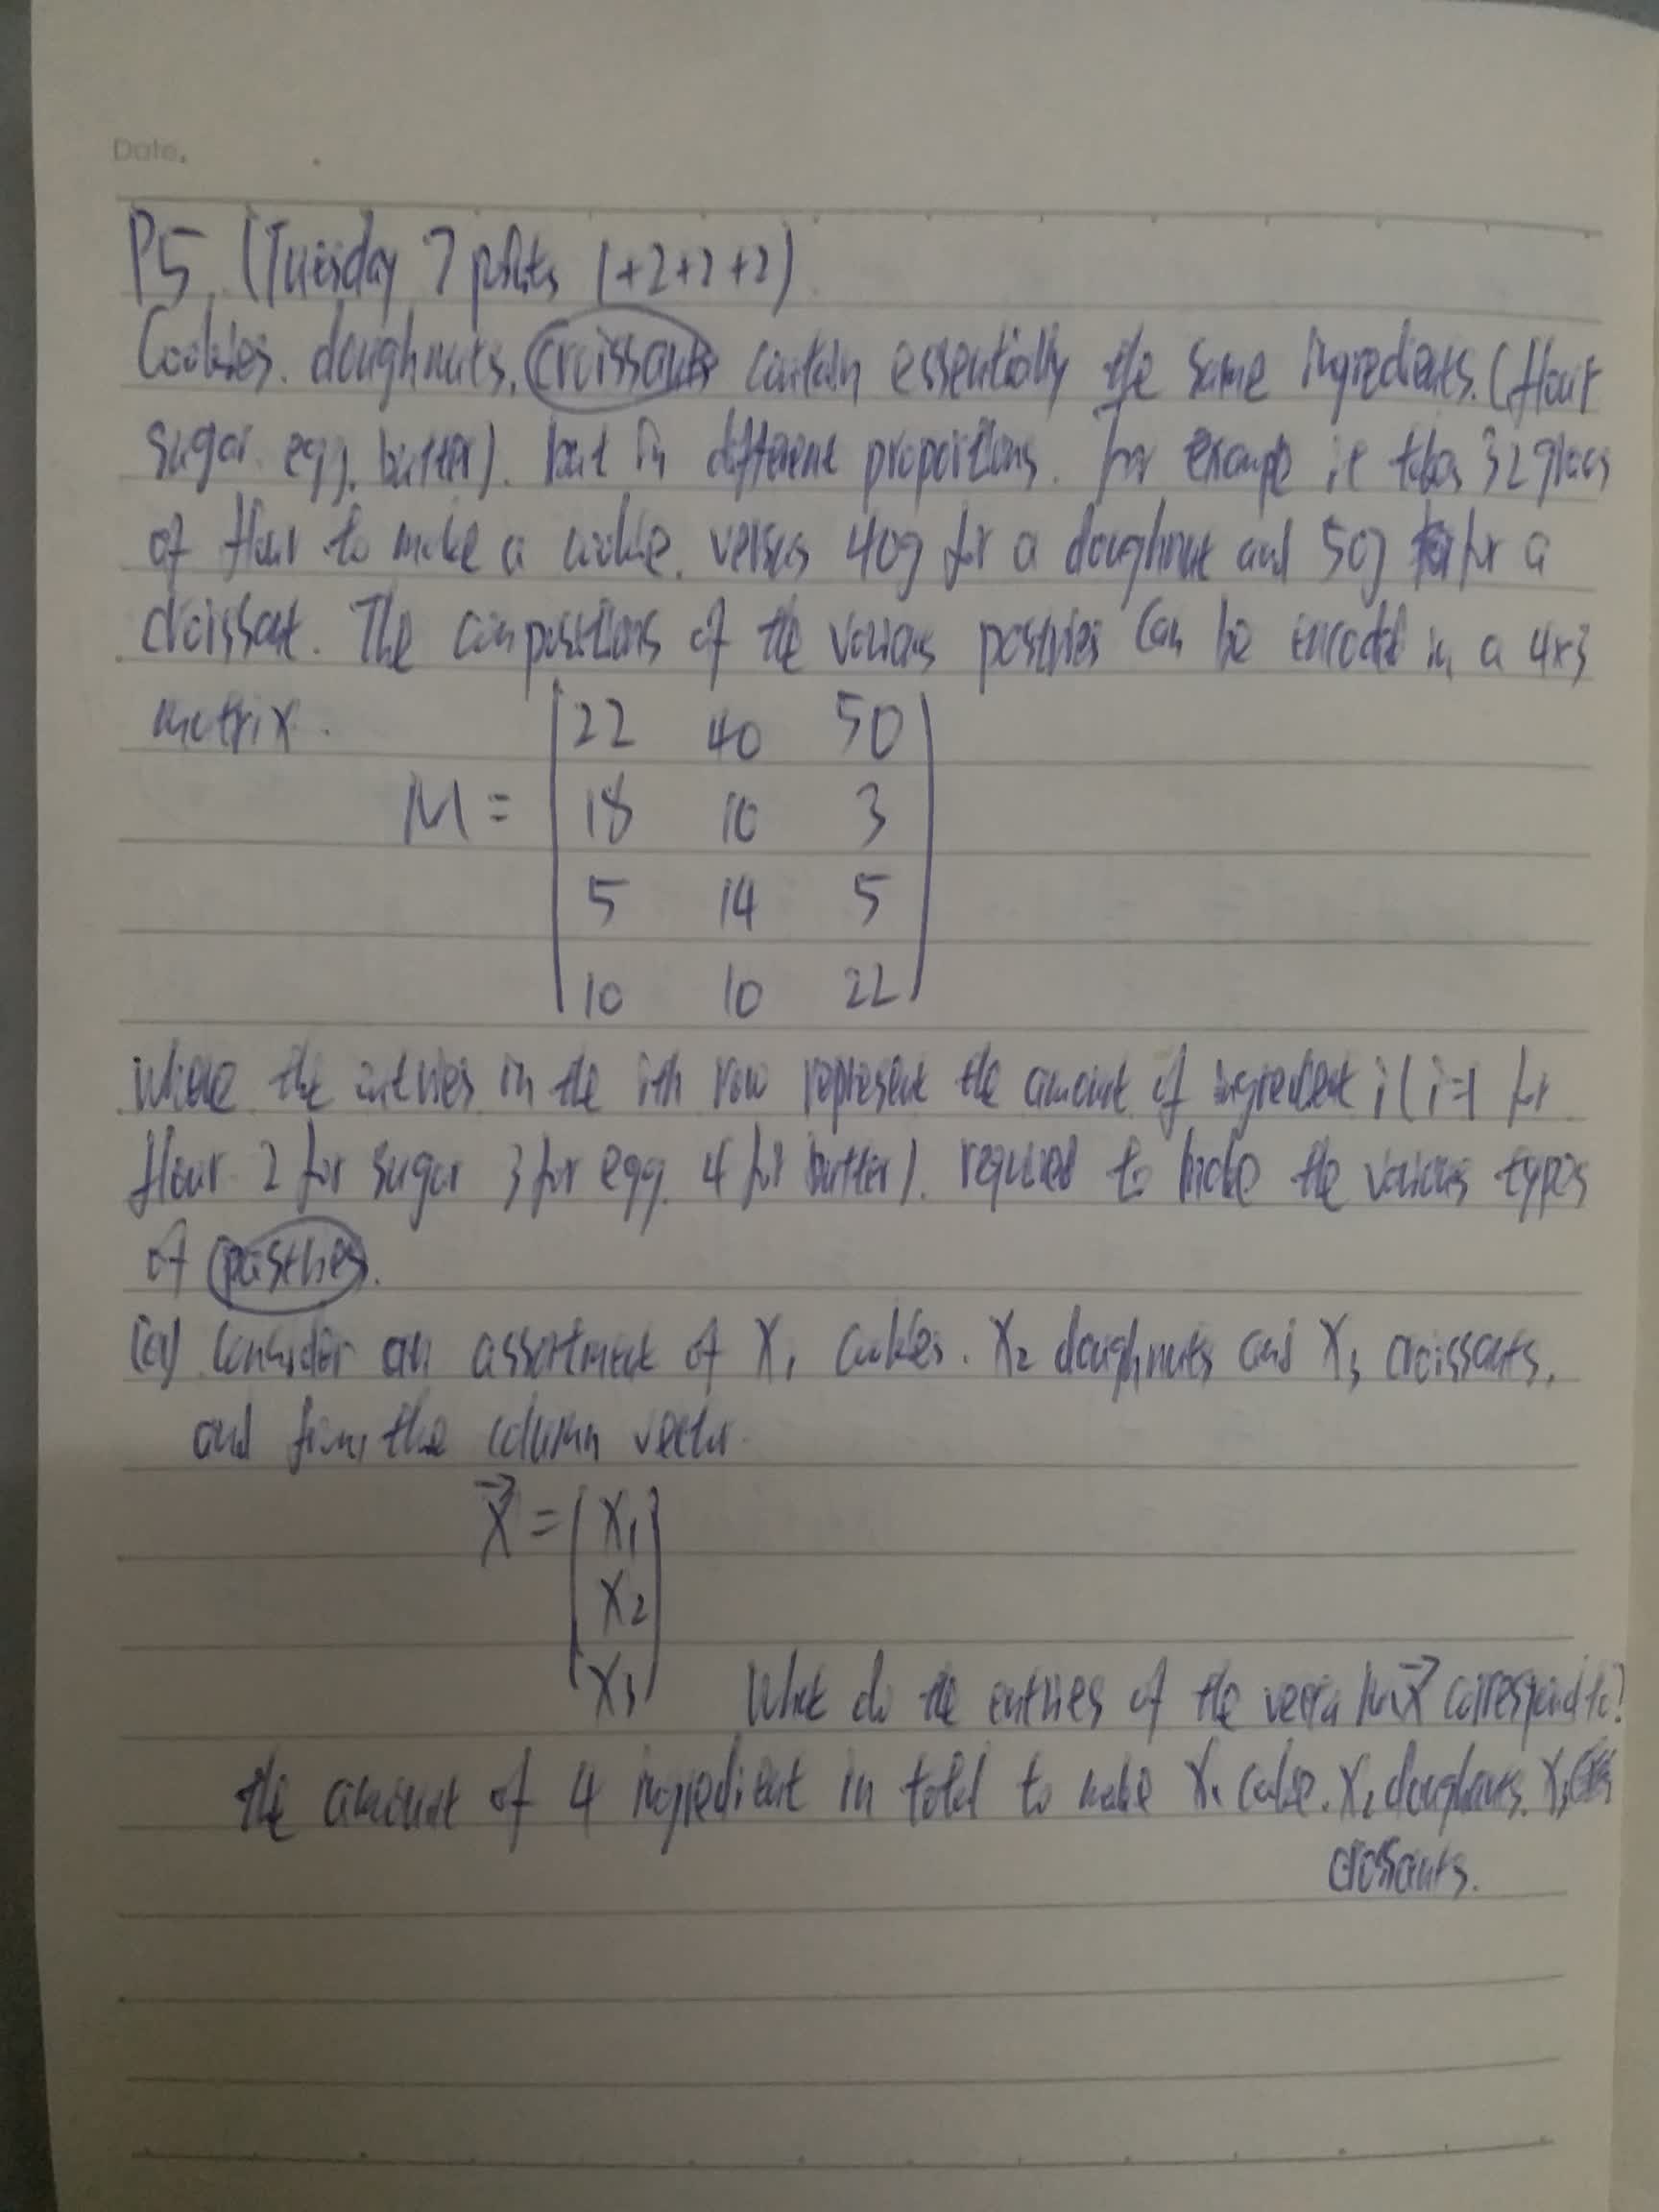 Date.
P5. (Tuesday 7 points 1+2+2+2)
Cookies. doughnuts. croissants contain essentially the same ingredients. (flour
sugar. egg. butter). but in different proportions. for example it takes 32 grams
of flour to make a cookie. versus 40g for a doughnut and 50g for a
croissant. The compositions of the various pastries can be encoded in a 4x3
matrix.
M = ( 22 40 50
18 10 3
5 14 5
10 10 22 )
where the entries in the ith row represent the amount of ingredient i (i=1 for
flour. 2 for sugar 3 for egg. 4 for butter). required to make the various types
of pastries.
(a) Consider an assortment of X1 cookies. X2 doughnuts and X3 croissants.
and form the column vector.
X⃗ = ( X1
X2
X3 ) What do the entries of the vector MX⃗ correspond to?
the amount of 4 ingredient in total to make X1 cookie. X2 doughnuts. X3
croissants.